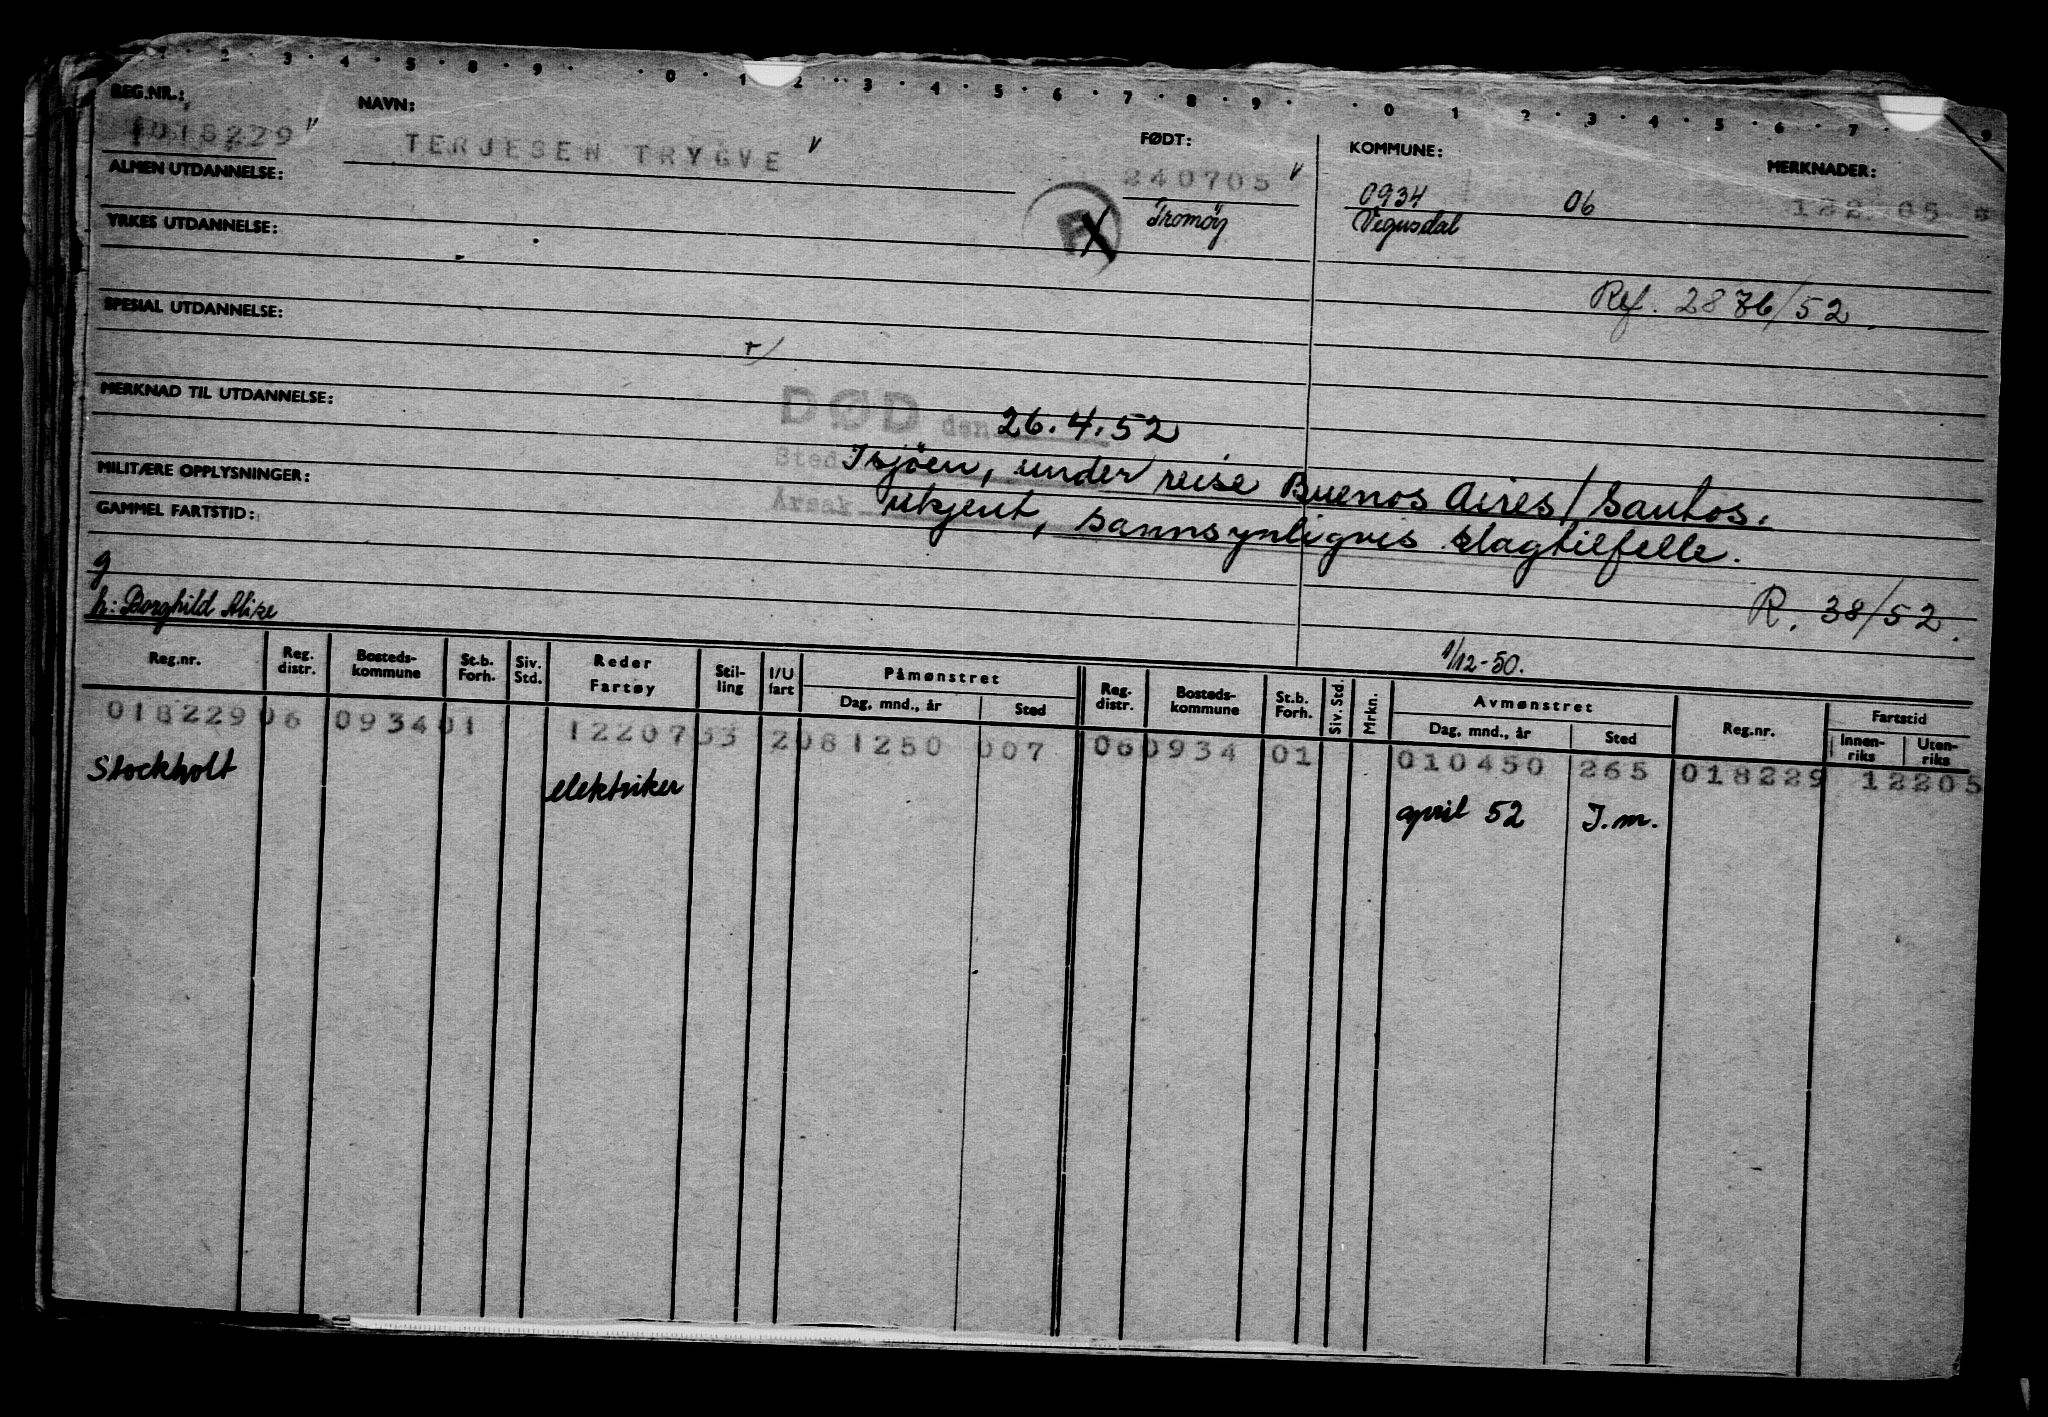 1 2 3 4 5 8 9 0 1 2 3 4 5 6 7 8 9 0 1 2 3 4 5 6 7 9
REG.NR.: NAVN: FØDT: KOMMUNE: MERKNADER:
1018229 v TERJESEN TRYGVE v 240705 v 0934 06 122 05
ALMEN UTDANNELSE: Tromöy Vegusdal
YRKES UTDANNELSE: F X
Ref. 2876/52.
SPESIAL UTDANNELSE:
MERKNAD TIL UTDANNELSE: DØD den 26.4.52
MILITÆRE OPPLYSNINGER: Sted I sjöen, under reise Buenos Aires/Santos.
GAMMEL FARTSTID: Årsak ukjent, sannsynligvis slagtilfelle.
g R. 38/52.
h: Borghild Alise 1/12-50.
Reg.nr. Reg. distr. Bosteds-kommune St.b. Forh. Siv. Std. Reder Fartøy Stil-ling I/U fart Påmønstret Dag, mnd., år Sted Reg. distr. Bosteds-kommune St.b. Forh. Siv. Std. Mrkn. Avmønstret Dag, mnd., år Sted Reg.nr. Fartstid Innen-riks Uten-riks
018229 06 0934 01 12207 33 2 081250 007 06 0934 01 010450 265 018229 12205
Stockholt elektriker april 52 I.m.